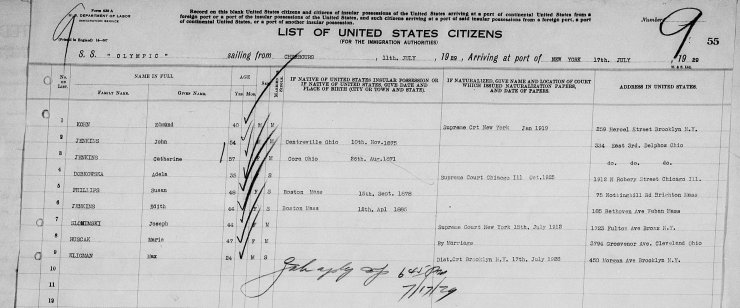 Form 630 A
U.S. DEPARTMENT OF LABOR
IMMIGRATION SERVICE
Record on this blank United States citizens and citizens of insular possessions of the United States arriving at a port of continental United States from a
foreign port or a port of the insular possessions of the United States, and such citizens arriving at a port of said insular possessions from a foreign port, a port
of continental United States, or a port of another insular possession.
Number 9
55
(Printed in England)
LIST OF UNITED STATES CITIZENS
(FOR THE IMMIGRATION AUTHORITIES)
S. S. "OLYMPIC" sailing from CHERBOURG, 11th. JULY, 1929, Arriving at port of NEW YORK 17th. JULY, 1929
No. OF LIST.
NAME IN FULL
FAMILY NAME. GIVEN NAME.
AGE
YRS. MOS.
SEX
IF NATIVE OF UNITED STATES INSULAR POSSESSION OR
IF NATIVE OF UNITED STATES, GIVE DATE AND
PLACE OF BIRTH (CITY OR TOWN AND STATE).
IF NATURALIZED, GIVE NAME AND LOCATION OF COURT
WHICH ISSUED NATURALIZATION PAPERS,
AND DATE OF PAPERS.
ADDRESS IN UNITED STATES.
1 KORN Edmund 40 M M Supreme Crt New York Jan 1919 259 Street Brooklyn N.Y.
2 JENKINS John 54 M M Centreville Ohio 10th. Nov. 1875 334 East 3rd. Delphos Ohio
3 JENKINS Catherine 57 F M Ohio 26th. Aug. 1871 do. do. do.
4 Adela 35 F S Supreme Court Chicago Ill Oct. 1925 1912 N Robery Street Chicago Ill.
5 PHILLIPS Susan 48 F S Boston Mass 15th. Sept. 1878 75 Nottinghill Rd Brighton Mass
6 JENKINS Edith 44 F S Boston Mass 12th. Apl 1885 165 Bethoven Ave Waban Mass
7 SLOMINSKI Joseph 44 M M Supreme Court New York 15th. July 1912 1723 Fulton Ave Bronx N.Y.
8 Marie 47 F M By Marriage 3794 Greevenor Ave. Cleveland Ohio
9 KLIGMAN Max 24 M S Dist. Crt Brooklyn N.Y. 17th. July 1925 450 Ave Brooklyn N.Y.
10
11
12
645 Pm
7/17/29